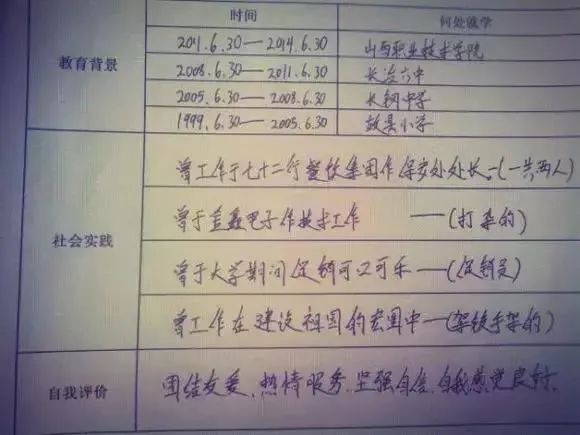 时间 何处就学
教育背景
2011.6.30—2014.6.30 山西职业技术学院
2008.6.30—2011.6.30 长治六中
2005.6.30—2008.6.30 长钢中学
1999.6.30—2005.6.30 故县小学
社会实践
曾工作于七十二行餐饮集团作保安处处长—(一共两人)
曾于富士康电子作技术工作 ——(打杂的)
曾于大学期间促销可口可乐——(促销员)
曾工作在建设祖国的宏图中—(架铁手架的)
自我评价
团结友爱、热情服务、坚强自信、自我感觉良好、